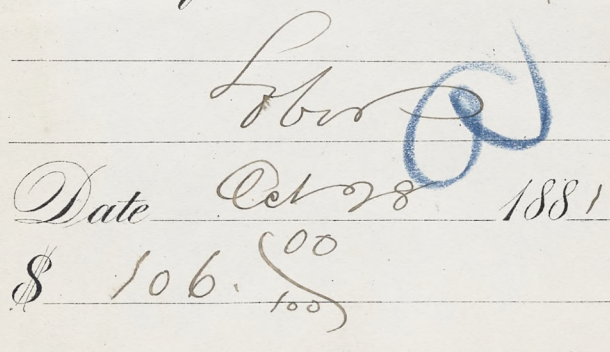 Labor
Date Oct 28 1881
$ 106. 00/100